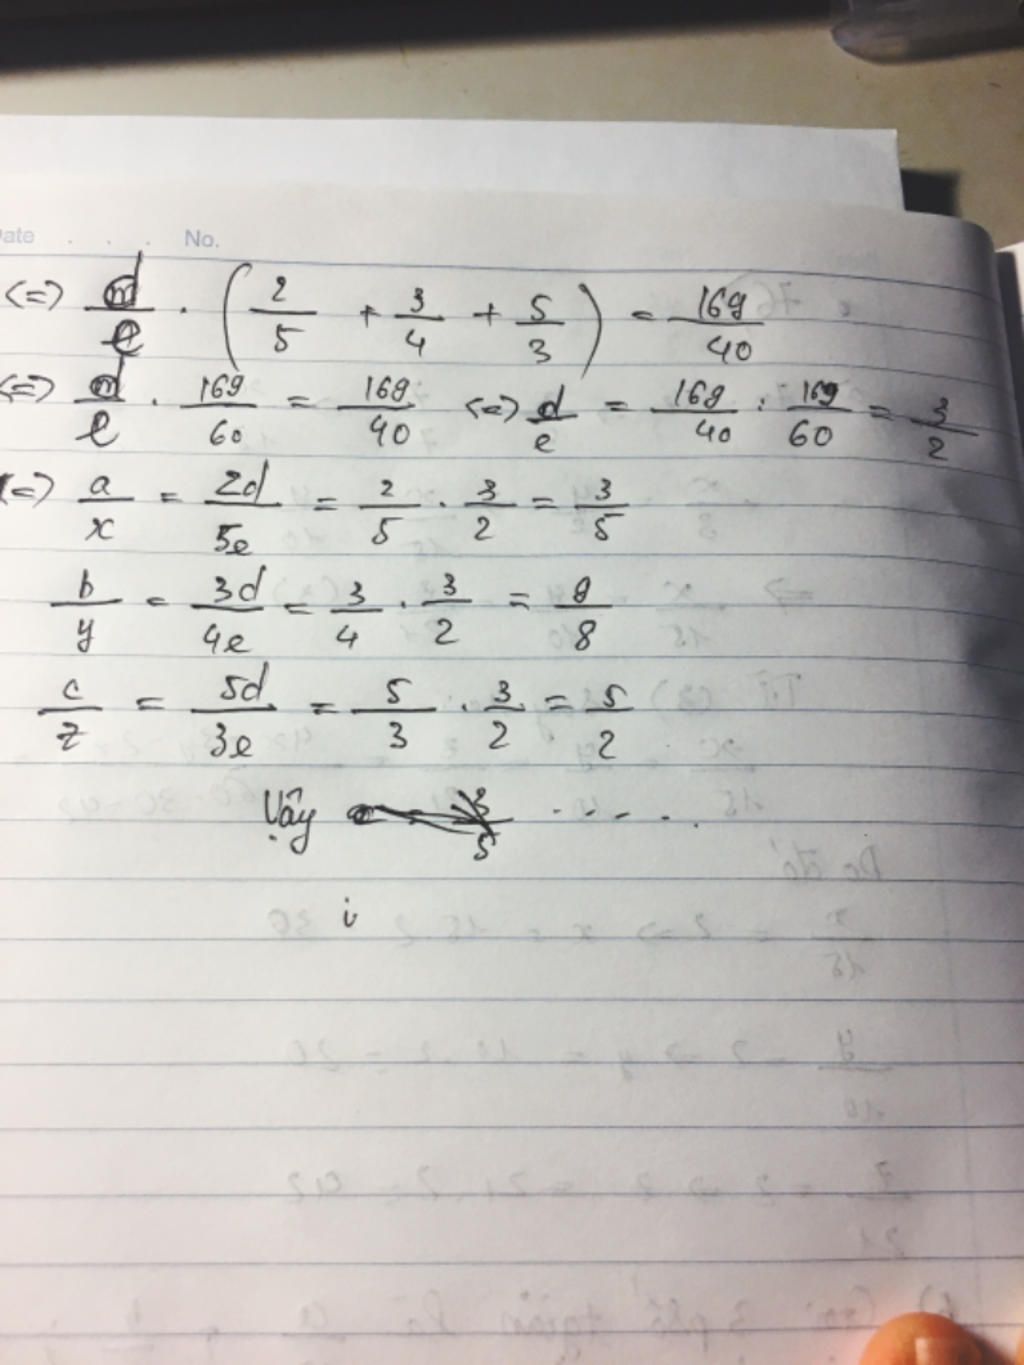 Date . . . No.
<=> d/e . (2/5 + 3/4 + 5/3) = 169/40
<=> d/e . 169/60 = 169/40 <=> d/e = 169/40 : 169/60 = 3/2
<=> a/x = 2d/5e = 2/5 . 3/2 = 3/5
b/y = 3d/4e = 3/4 . 3/2 = 9/8
c/z = 5d/3e = 5/3 . 3/2 = 5/2
Vậy . . . . .
i